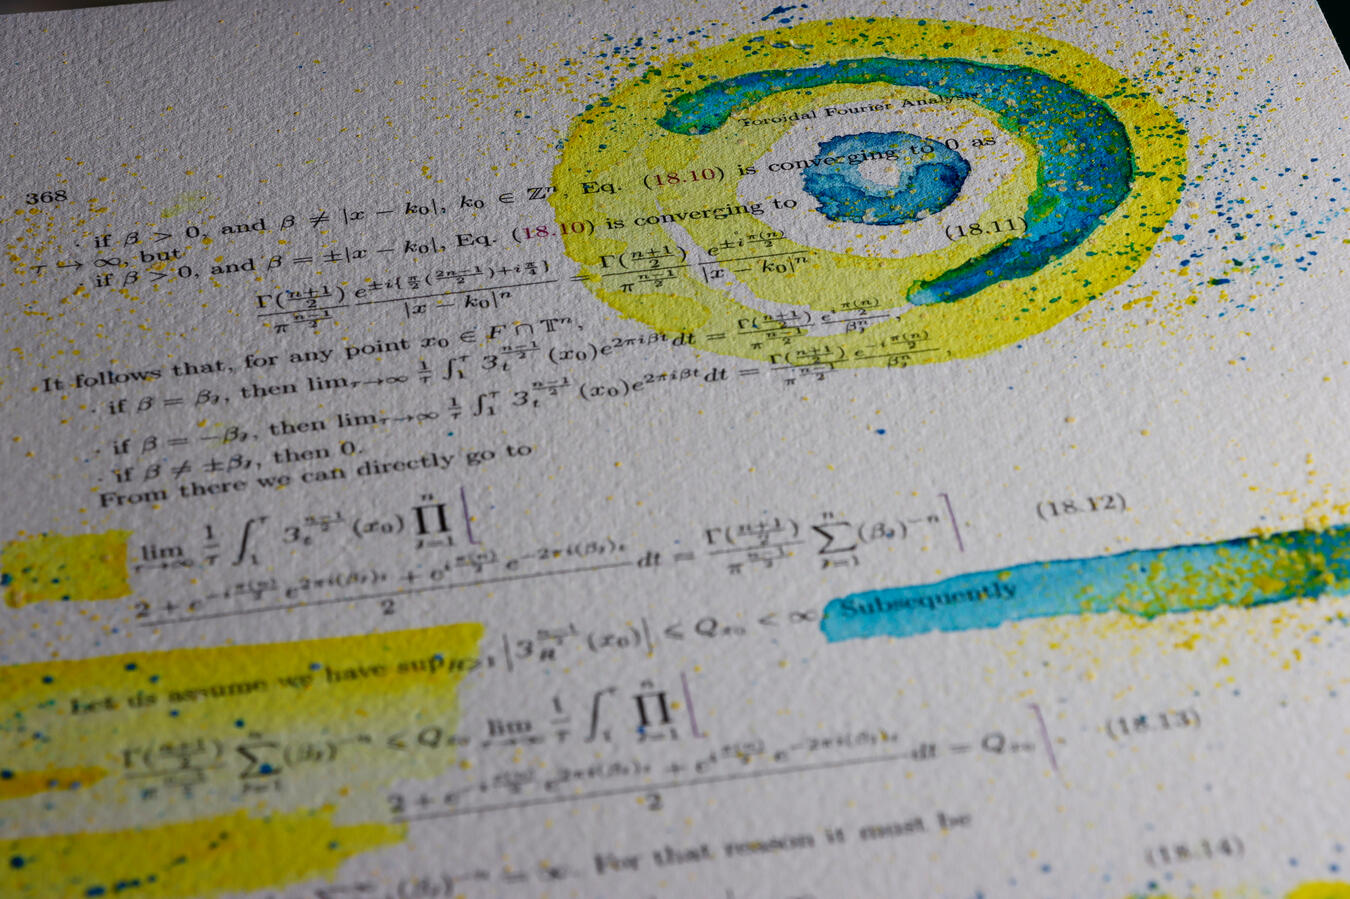 368
Toroidal Fourier Analysis
· if β > 0, and β ≠ |x − k₀|, k₀ ∈ ℤⁿ, Eq. (18.10) is converging to 0 as
τ → ∞, but
· if β > 0, and β = ±|x − k₀|, Eq. (18.10) is converging to
Γ((n+1)/2) / π^((n−1)/2) · e^(±i{π/2((2n−1)/2)+iπ/4}) / |x − k₀|ⁿ = Γ((n+1)/2) / π^((n−1)/2) · e^(±i π(n)/2) / |x − k₀|ⁿ. (18.11)
It follows that, for any point x₀ ∈ F ∩ 𝕋ⁿ,
· if β = βⱼ, then lim_(τ→∞) 1/τ ∫₁^τ 3_t^((n−1)/2) (x₀)e^(2πiβt) dt = Γ((n+1)/2) / π^((n−1)/2) · e^(i π(n)/2) / βⱼⁿ,
· if β = −βⱼ, then lim_(τ→∞) 1/τ ∫₁^τ 3_t^((n−1)/2) (x₀)e^(2πiβt) dt = Γ((n+1)/2) / π^((n−1)/2) · e^(−i π(n)/2) / βⱼⁿ,
· if β ≠ ±βⱼ, then 0.
From there we can directly go to
lim_(τ→∞) 1/τ ∫₁^τ 3_t^((n−1)/2) (x₀) ∏_(j=1)^n ⌊
2 + e^(−i π(n)/2) e^(2πi(βⱼ)t) + e^(i π(n)/2) e^(−2πi(βⱼ)t) / 2 dt = Γ((n+1)/2) / π^((n−1)/2) ∑_(j=1)^n (βⱼ)^(−n) ⌉. (18.12)
Let us assume we have sup_(R>1) |3_R^((n−1)/2) (x₀)| ≤ Q_(x₀) < ∞. Subsequently
Γ((n+1)/2) / π^((n−1)/2) ∑_(j=1)^n (βⱼ)^(−n) ≤ Q_(x₀) lim_(τ→∞) 1/τ ∫₁^τ ∏_(j=1)^n ⌊
2 + e^(−i π(n)/2) e^(2πi(βⱼ)t) + e^(i π(n)/2) e^(−2πi(βⱼ)t) / 2 dt = Q_(x₀) ⌉. (18.13)
(βⱼ)^(−n) = ∞. For that reason it must be
(18.14)